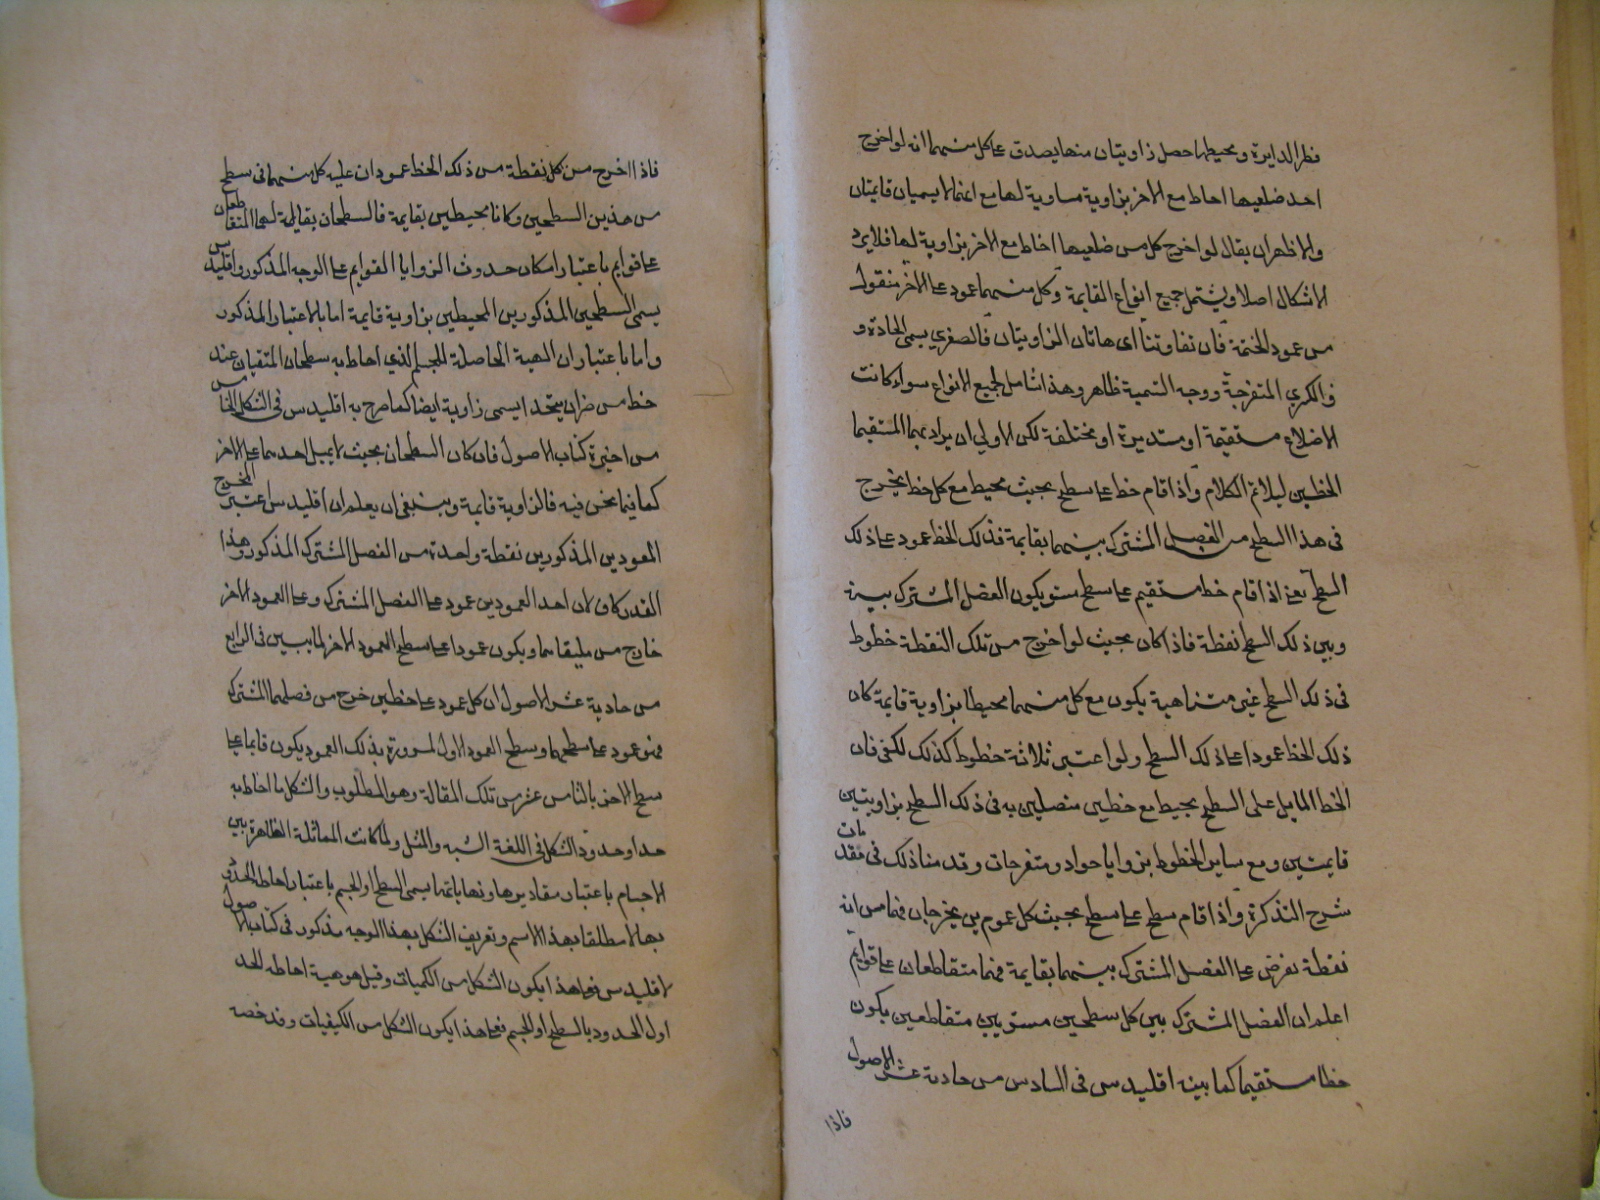 قطر الدايرة ومحيطها حصل زاويتان منها يصدق على كل منهما انه لو اخرج
احد ضلعيها احاط مع الاخر بزاوية مساوية لها مع انهما لا يسميان قايمتان
والاظهر ان يقال لو اخرج كل من ضلعيها احاط مع الاخر بزاوية لها فلا يرد
الاشكال اصلا ويشتمل جميع انواع القايمة وكل منهما عمود على الاخر منقول
من عمود الخيمة فان تفاوتتا اى هاتان الزاويتان فالصغري يسمى الحادة و
والكبري المنفرجة ووجه التسمية ظاهر وهذا شامل لجميع الانواع سواء كانت
الاضلاع مستقيمة او مستديرة او مختلفة لكن الاولي ان يراد بهما المستقيما
الخطين ليلائم الكلام واذا قام خط على سطح بحيث محيط مع كل خط يخرج
فى هذا السطح من الفصل المشترك بينهما بقايمة فذلك الخط عمود على ذلك
السطح يعنى اذا قام خط مستقيم على سطح مستو يكون الفصل المشترك بينه
وبين ذلك السطح نقطة فاذا كان بحيث لو اخرج من تلك النقطة خطوط
فى ذلك السطح غير متناهية يكون مع كل منهما محيطا بزاوية قايمة كان
ذلك الخط عمودا على ذلك السطح ولو اعتبر ثلاثة خطوط كذلك لكفى فان
الخط المايل على السطح يحيط مع خطين متصلين به فى ذلك السطح بزاويتين
قايمتين ومع ساير الخطوط بزوايا حواد ومنفرجات وقد منا ذلك فى مقدمات
شرح التذكرة واذا قام سطح على سطح بحيث كل عمودين يخرجان فيهما من اية
نقطة تفرض على الفصل المشترك بينهما بقايمة فهما متقاطعان على قوايم
اعلم ان الفصل المشترك بين كل سطحين مستويين متقاطعين يكون
خطا مستقيما كما بينه اقليدس فى السادس من حادية عشر الاصول
فاذا
فاذا اخرج من كل نقطة من ذلك الخط عمودان عليه كل منهما فى سطح
من هذين السطحين وكانا محيطين بقايمة فالسطحان يقال لهما المتقاطعان
على قوايم باعتبار امكان حدوث الزوايا القوايم على الوجه المذكور واقليدس
يسمى السطحين المذكورين المحيطين بزاوية قايمة اما بالاعتبار المذكور
واما باعتبار ان الهيئة الحاصلة للمجسم الذي احاط به سطحان المتقيان عند
خط من غير ان يتحدا يسمى زاوية ايضا كما صرح به اقليدس فى الشكل الخامس
من اخيرة كتاب الاصول فان كان السطحان بحيث لا يميل احدهما على الاخر
كما فيما نحن فيه فالزاوية قايمة وينبغى ان يعلم ان اقليدس اعتبر لمخرج
العمودين المذكورين نقطة واحدة من الفصل المشترك المذكور وهذا
القدر كاف لان احد العمودين عمود على الفصل المشترك وعلى العمود الاخر
خارج من ملتقاهما ويكون عمودا على سطح العمود الاخر لما يبين فى الرابع
من حادية عشر الاصول ان كل عمود على خطين خرج من فصلهما المشترك
فهو عمود على سطحهما وسطح العمود الاول لمروره بذلك العمود يكون قايما على
سطح الاخر بالثامن عشر من تلك المقالة وهو المطلوب والشكل ما احاط به
حد او حدود الشكل فى اللغة الشبه والمثل ولما كانت المماثلة الظاهرة بين
الاجسام باعتبار مقاديرها ونهاياتها يسمى السطح او الجسم باعتبار احاطة الحدود
بها لا مطلقا بهذا الاسم وتعريف الشكل بهذا الوجه مذكور فى كتاب الاصول
لاقليدس فعلى هذا يكون الشكل من الكميات وقيل هو هيئة احاطة الحد
اول الحدود بالسطح او الجسم فعلى هذا يكون الشكل من الكيفيات وقد خصه